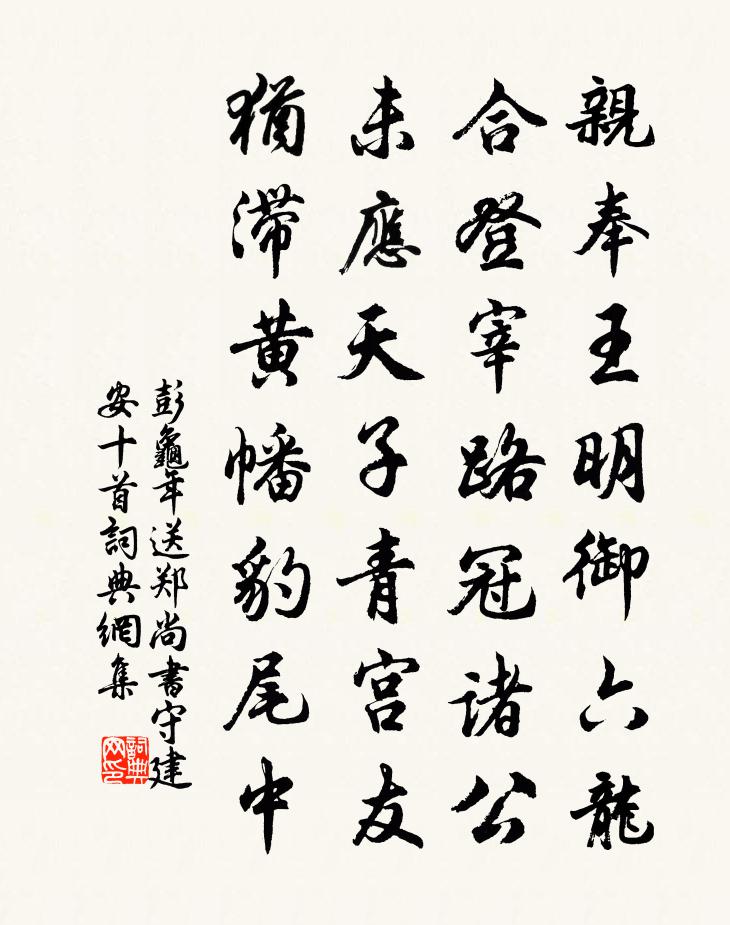 親奉王明御六龍
合登宰路冠諸公
未應天子青宮友
猶滯黃幡豹尾中
彭龜年送郑尚書守建
安十首詞典網集
詞典
网印